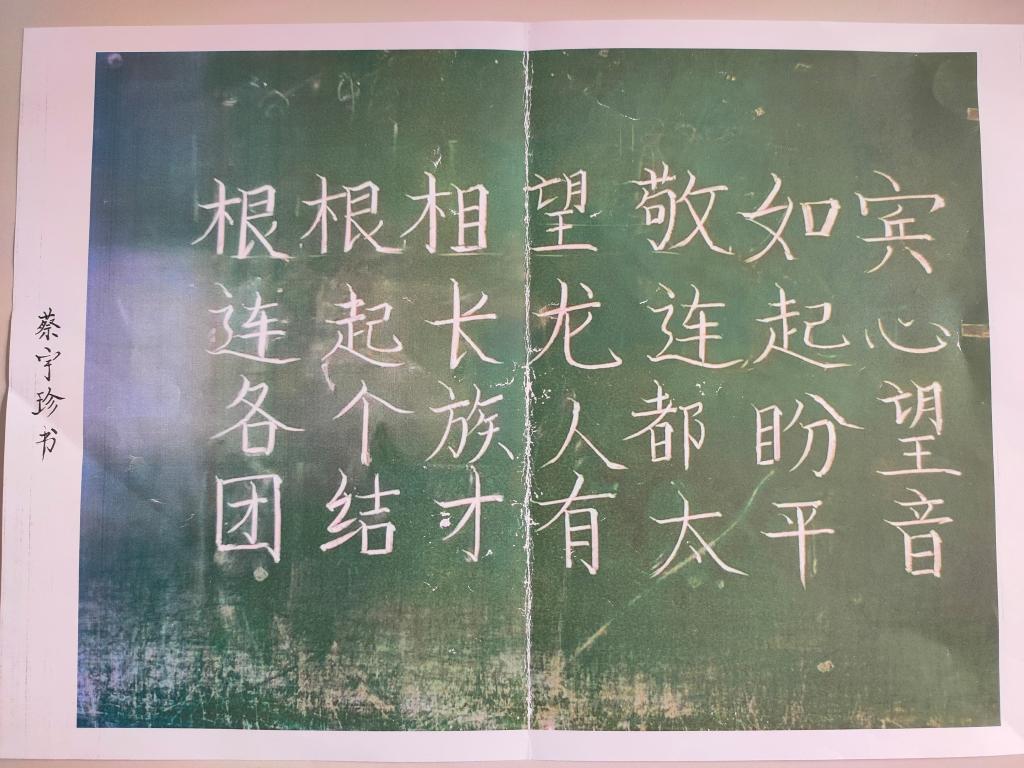 根根相望敬如宾
连起长龙连起心
各个族人都盼望
团结才有太平音
蔡宇珍书